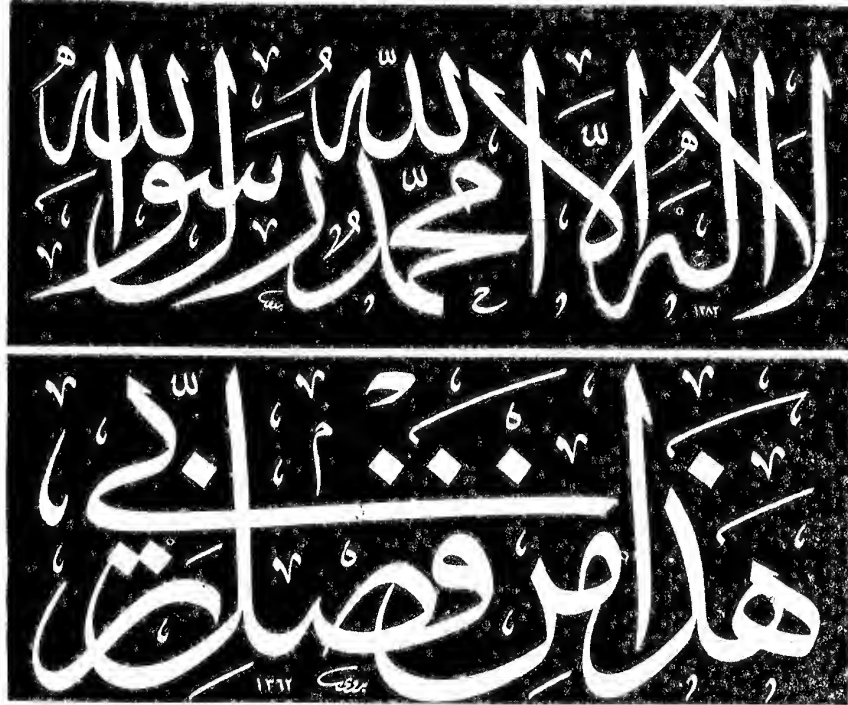 لا اله الا الله محمد رسول الله
١٣٨٢
هذا من فضل ربي
١٣٦٢